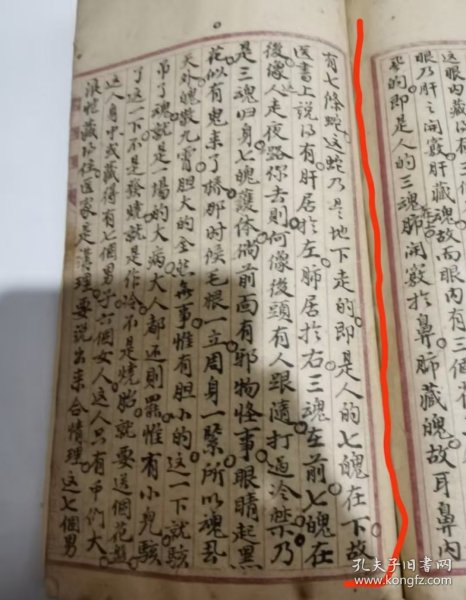 這眼内藏得有
眼乃肝之開竅肝藏魂故而眼内有三個
的即是人的三魂肺開竅於鼻肺藏魄故耳鼻内
有七條蛇這蛇乃是地下走的即是人的七魄在下故
医書上說得有肝居於左肺居於右三魂在前七魄在
後像人走夜路你去則何像後頭有人跟隨打過冷禁乃
是三魂归身七魄護体倘前面有邪物怪事眼睛起黑
花似有鬼来了樁那时候毛根一立周身一緊所以魂飞
天外魄散九霄胆大的全然無事惟有胆小的這一下就駭
吊了魂就是一場的大病大人都还則罷惟有小兒駭
了這一下不是發燒就是作冷不是燒胎就要送個花盤
這人身中或藏得有七個男子六個女人這人只有中们大
浪怕藏不住医家是講理要說出来合情理這七個男
孔夫子旧书网
www.kongfz.com